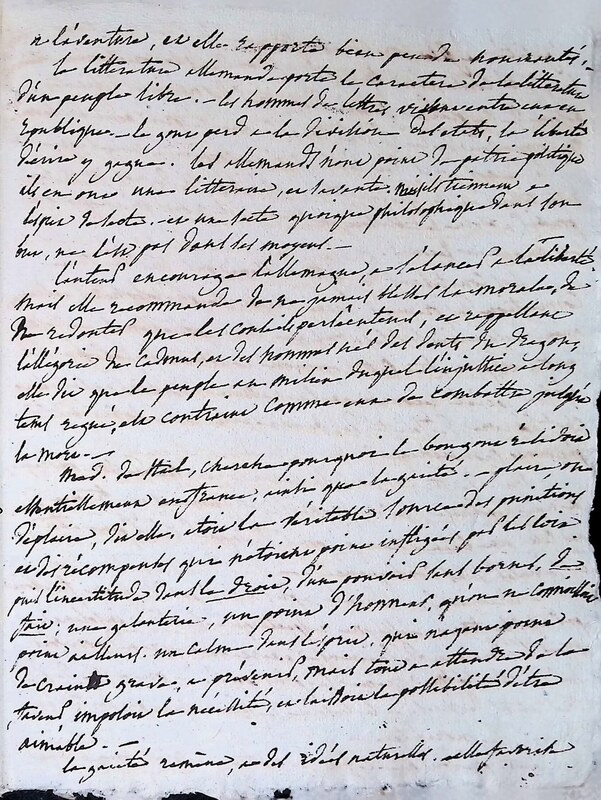 a l'aventure, et elle rapporte beaucoup de nouveautés.
la littérature allemande porte le caractere de la littérature
d'un peuple libre. - les hommes de lettres vivent entre eux en
république - le gout perd a la division des etats, la liberté
d'écrire y gagne. les allemands n'ont point de patrie politique
ils en ont une litteraire, et savante,
l'esprit de secte. - et une secte quoique philosophique dans son
but, ne l'est pas dans ses moyens. -
l'auteur encourage l'allemagne, a s'élancer a la liberté
mais elle recommande de ne jamais blesser la morale, de
ne redouter que les conseils persécuteurs, et rappellant
l'allégorie de cadmus, et des hommes nés des dents du dragon,
elle dit que le peuple au milieu duquel l'injustice a long
tems regné, est contraint comme eux de combattre jusqu'a
la mort. -
Mad. de Stael, cherche pourquoi le bon gout réside
essentiellement en france, ainsi que la gaieté. - plaire ou
déplaire, dit elle, etoit la véritable source des punitions
et des récompenses qui n'étoient point infligées par les loix
puis l'incertitude dans le droit, d'un pouvoir sans bornes, de
fait; une galanterie, un point d'honneur, qu'on ne connoissoit
point ailleurs. un calme dans l'esprit, qui n'ayant point
de crainte grave, a prévenir, mais tout a attendre de la
faveur imposoit la nécéssité, et laissoit la possibilité d'être
aimable. -
la gaieté ramène, a des idées naturelles.